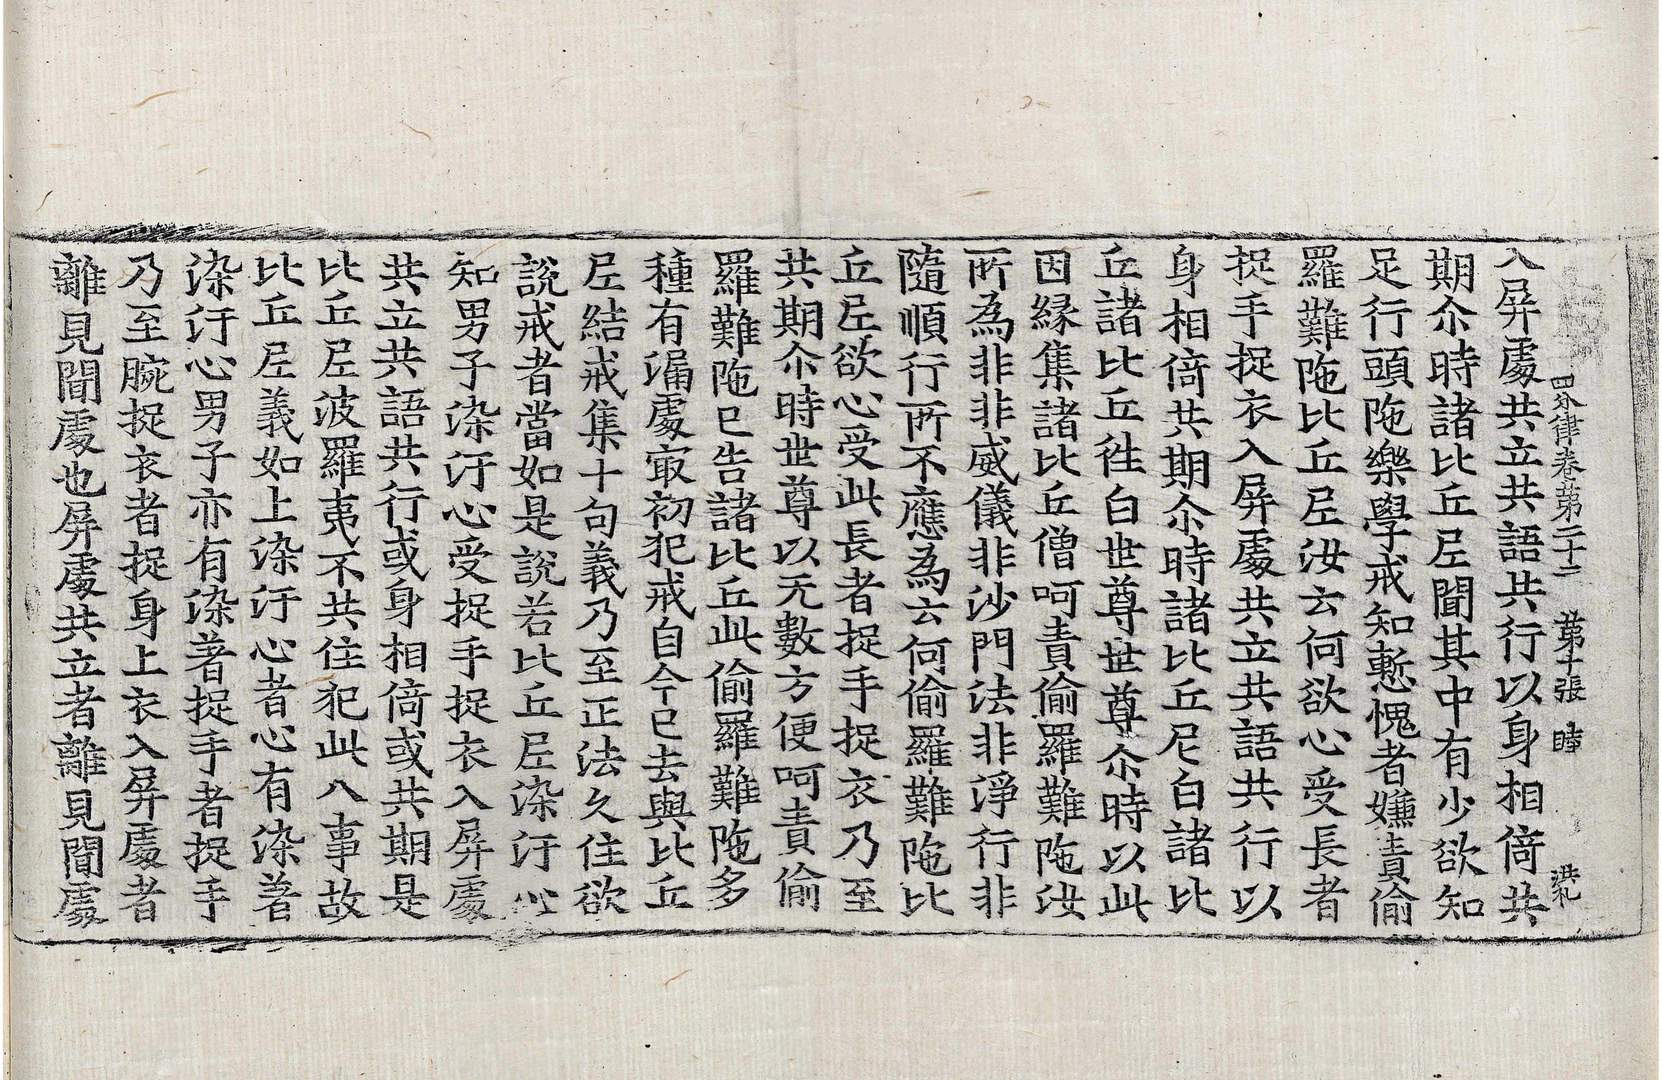 四分律卷第二十二　第十張　睦　洪礼
入屏處共立共語共行以身相倚共
期尒時諸比丘尼聞其中有少欲知
足行頭陁樂學戒知慙愧者嫌責偷
羅難陁比丘尼汝云何欲心受長者
捉手捉衣入屏處共立共語共行以
身相倚共期尒時諸比丘尼白諸比
丘諸比丘徃白世尊世尊尒時以此
因緣集諸比丘僧呵責偷羅難陁汝
所為非非威儀非沙門法非淨行非
隨順行所不應為云何偷羅難陁比
丘尼欲心受此長者捉手捉衣乃至
共期尒時世尊以无數方便呵責偷
羅難陁已告諸比丘此偷羅難陁多
種有漏處㝡初犯戒自今已去與比丘
尼結戒集十句義乃至正法久住欲
說戒者當如是說若比丘尼染汙心
知男子染汙心受捉手捉衣入屏處
共立共語共行或身相倚或共期是
比丘尼波羅夷不共住犯此八事故
比丘尼義如上染汙心者心有染著
染汙心男子亦有染著捉手者捉手
乃至腕捉衣者捉身上衣入屏處者
離見聞處也屏處共立者離見聞處